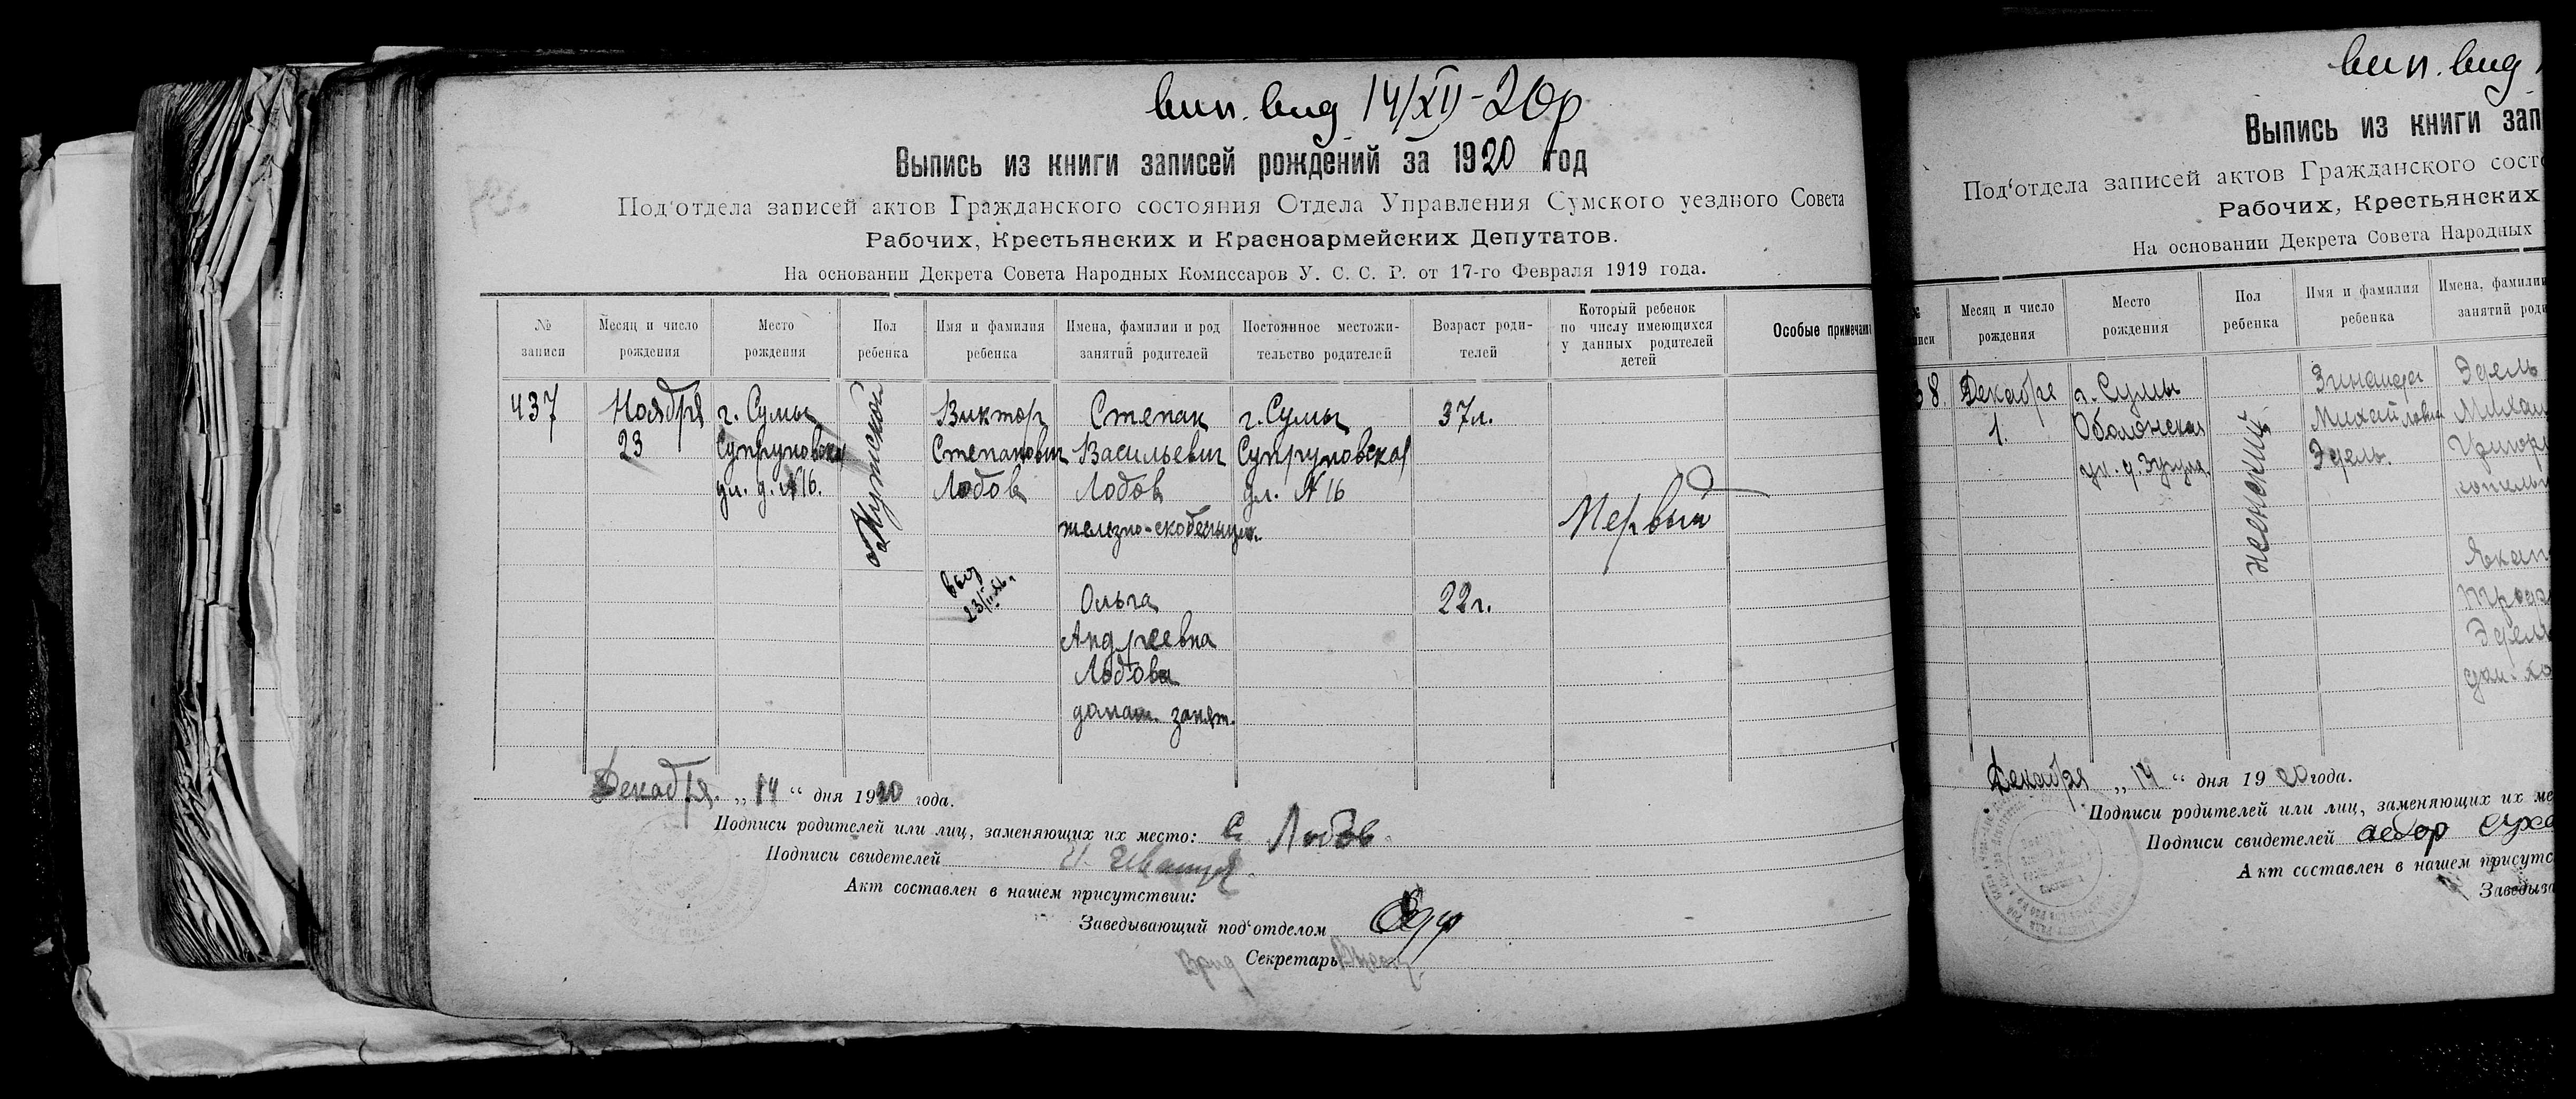 вип. вид 14/XII-20р
Выпись из книги записей рождений за 1920 год
Под'отдела записей актов Гражданского состояния Отдела Управления Сумского уездного Совета
Рабочих, Крестьянских и Красноармейских Депутатов.
На основании Декрета Совета Народных Комиссаров У. С. С. Р. от 17-го Февраля 1919 года.
№ записи
Месяц и число рождения
Место рождения
Пол ребенка
Имя и фамилия ребенка
Имена, фамилии и род занятий родителей
Постоянное местожи-
тельство родителей
Возраст роди-
телей
Который ребенок
по числу имеющихся
у данных родителей
детей
Особые примечан
437
Ноября
23
г. Сумы
Супруновская
ул. д. №16.
Мужской
Виктор
Степанович
Лобов
Степан
Васильевич
Лобов
г. Сумы
Супруновская
ул. №16
37л.
Первый
Ольга
Андреевна
Лобова
домаш. занят.
22г.
Декабря „14“ дня 1920 года.
Подписи родителей или лиц, заменяющих их место: С Лобов
Подписи свидетелей
Акт составлен в нашем присутствии:
Заведывающий под'отделом
Врид Секретарь
вип. вид
Выпись из книги зап
Под'отдела записей актов Гражданского сост
Рабочих, Крестьянских
На основании Декрета Совета Народных
иси
Месяц и число
рождения
Место
рождения
Пол
ребенка
Имя и фамилия
ребенка
Имена, фамилии
занятий роди
38
Декабря
1.
г. Сумы
Оболонская
женский
Зинаида
Михайловна
Эдель.
Эдель
Михаи
Григор
Декабря „14“ дня 1920 года.
Подписи родителей или лиц, заменяющих их ме
Подписи свидетелей
Акт составлен в нашем присутс
Заведыва